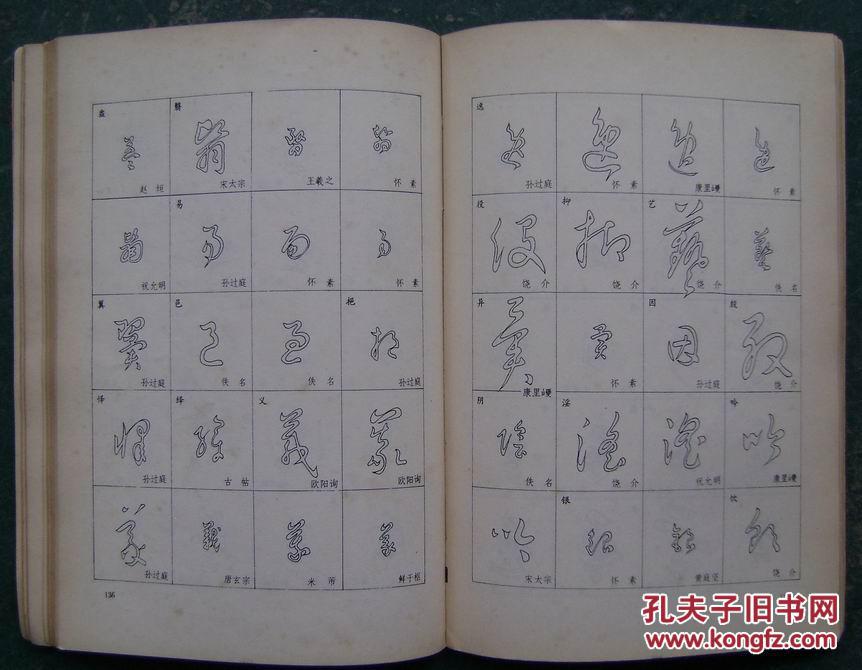 益 翳
赵 恒 宋太宗 王羲之 怀 素
易
祝允明 孙过庭 怀 素 怀 素
翼 邑 挹
孙过庭 佚 名 佚 名 孙过庭
怿 绎 义
孙过庭 古 帖 欧阳询 欧阳询
孙过庭 唐玄宗 米 芾 鲜于枢
136
逸
孙过庭 怀 素 康里巎 怀 素
役 抑 艺
饶 介 饶 介 饶 介 佚 名
异 因 殷
康里巎 怀 素 孙过庭 饶 介
阴 淫 吟
佚 名 饶 介 祝允明 康里巎
银 饮
宋太宗 怀 素 黄庭坚 饶 介
孔夫子旧书网
www.kongfz.com